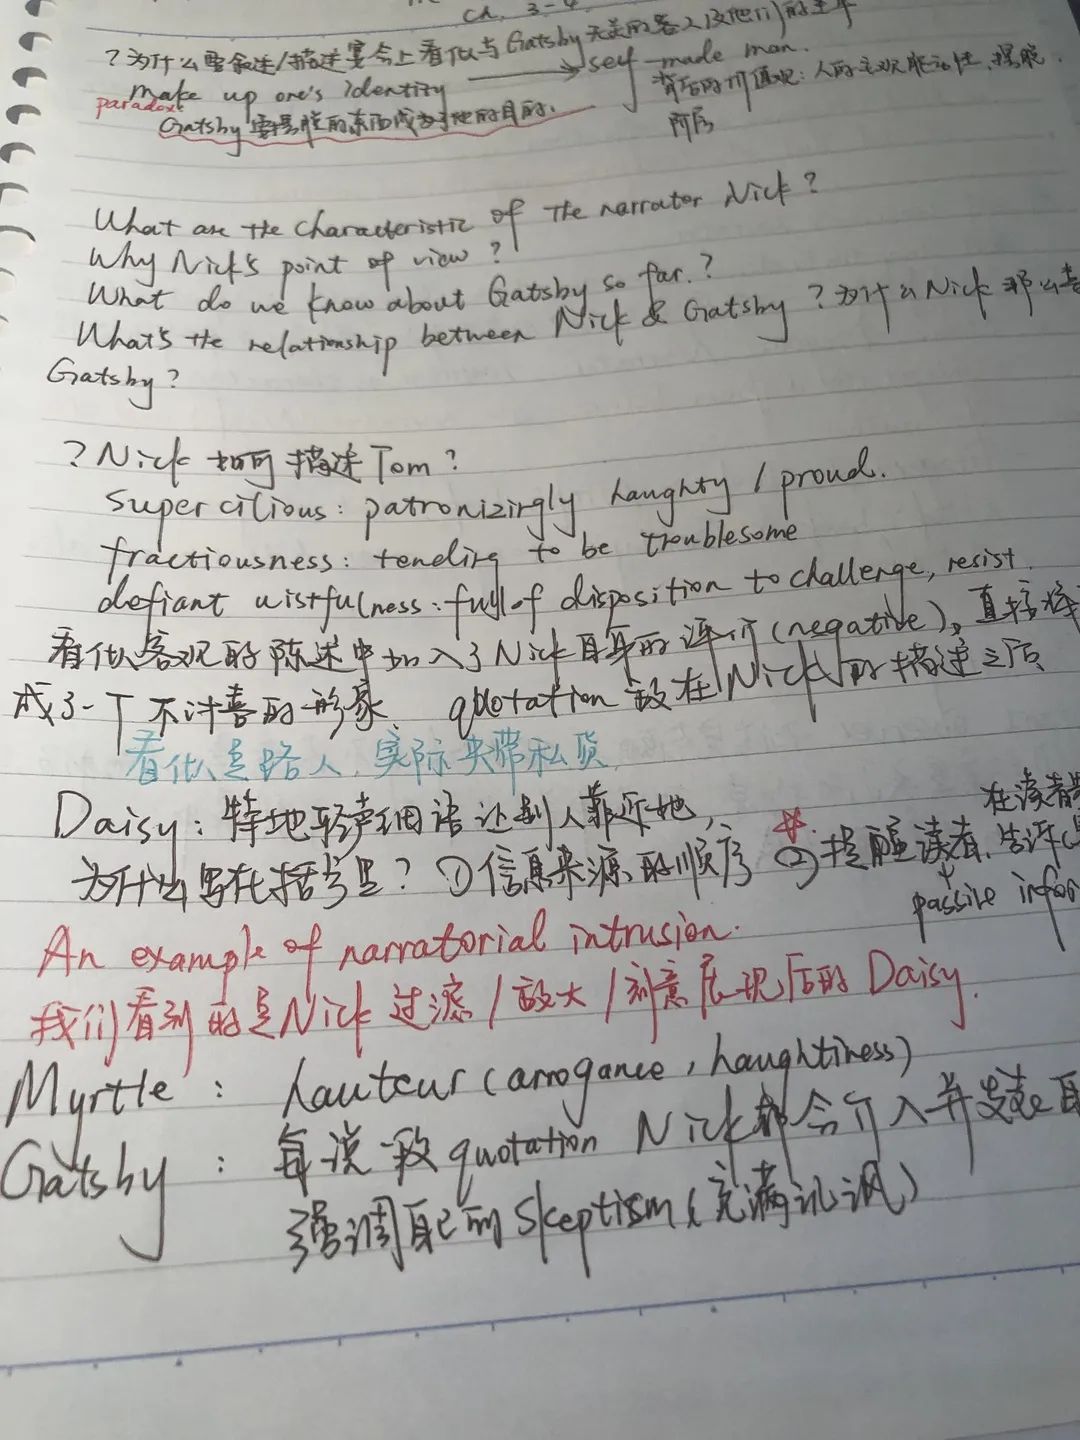 Ch. 3-4
?为什么要叙述/描述宴会上看似与Gatsby无关的客人及他们的生平
make up one's identity → self-made man.
背后的价值观:人的主观能动性,摆脱
阶层
paradox: Gatsby要摆脱的东西成为了他的目的.
What are the characteristic of the narrator Nick?
Why Nick's point of view?
What do we know about Gatsby so far.?
What's the relationship between Nick & Gatsby?为什么Nick那么
Gatsby?
?Nick如何描述Tom?
supercilious: patronizingly haughty / proud.
fractiousness: tending to be troublesome
defiant wistfulness: full of disposition to challenge, resist.
看似客观的陈述中加入了Nick自身的评价(negative),直接
成了一个不讨喜的形象. quotation放在Nick的描述之后
看似是路人,实际夹带私货
Daisy:特地轻声细语让别人靠近她,
在读者
为什么写在括号里?①信息来源的顺序 ②提醒读者,告诉
passive infor
An example of narratorial intrusion.
我们看到的是Nick过滤/放大/刻意展现后的Daisy.
Myrtle: hauteur(arrogance, haughtiness)
Gatsby:每说一段quotation Nick都会介入并发表自
强调自己的skeptism(充满讥讽)